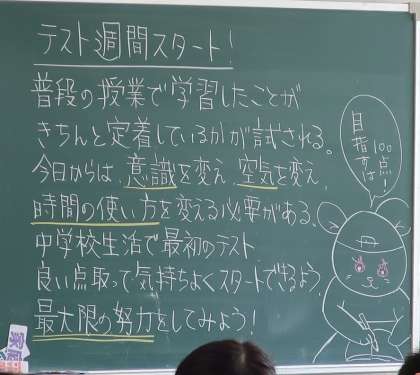 テスト週間スタート!
普段の授業で学習したことが
きちんと定着しているかが試される。
今日からは、意識を変え、空気を変え、
時間の使い方を変える必要がある。
中学校生活で最初のテスト
良い点取って気持ちよくスタートできるよう、
最大限の努力をしてみよう!
目指すは
100点!
家庭